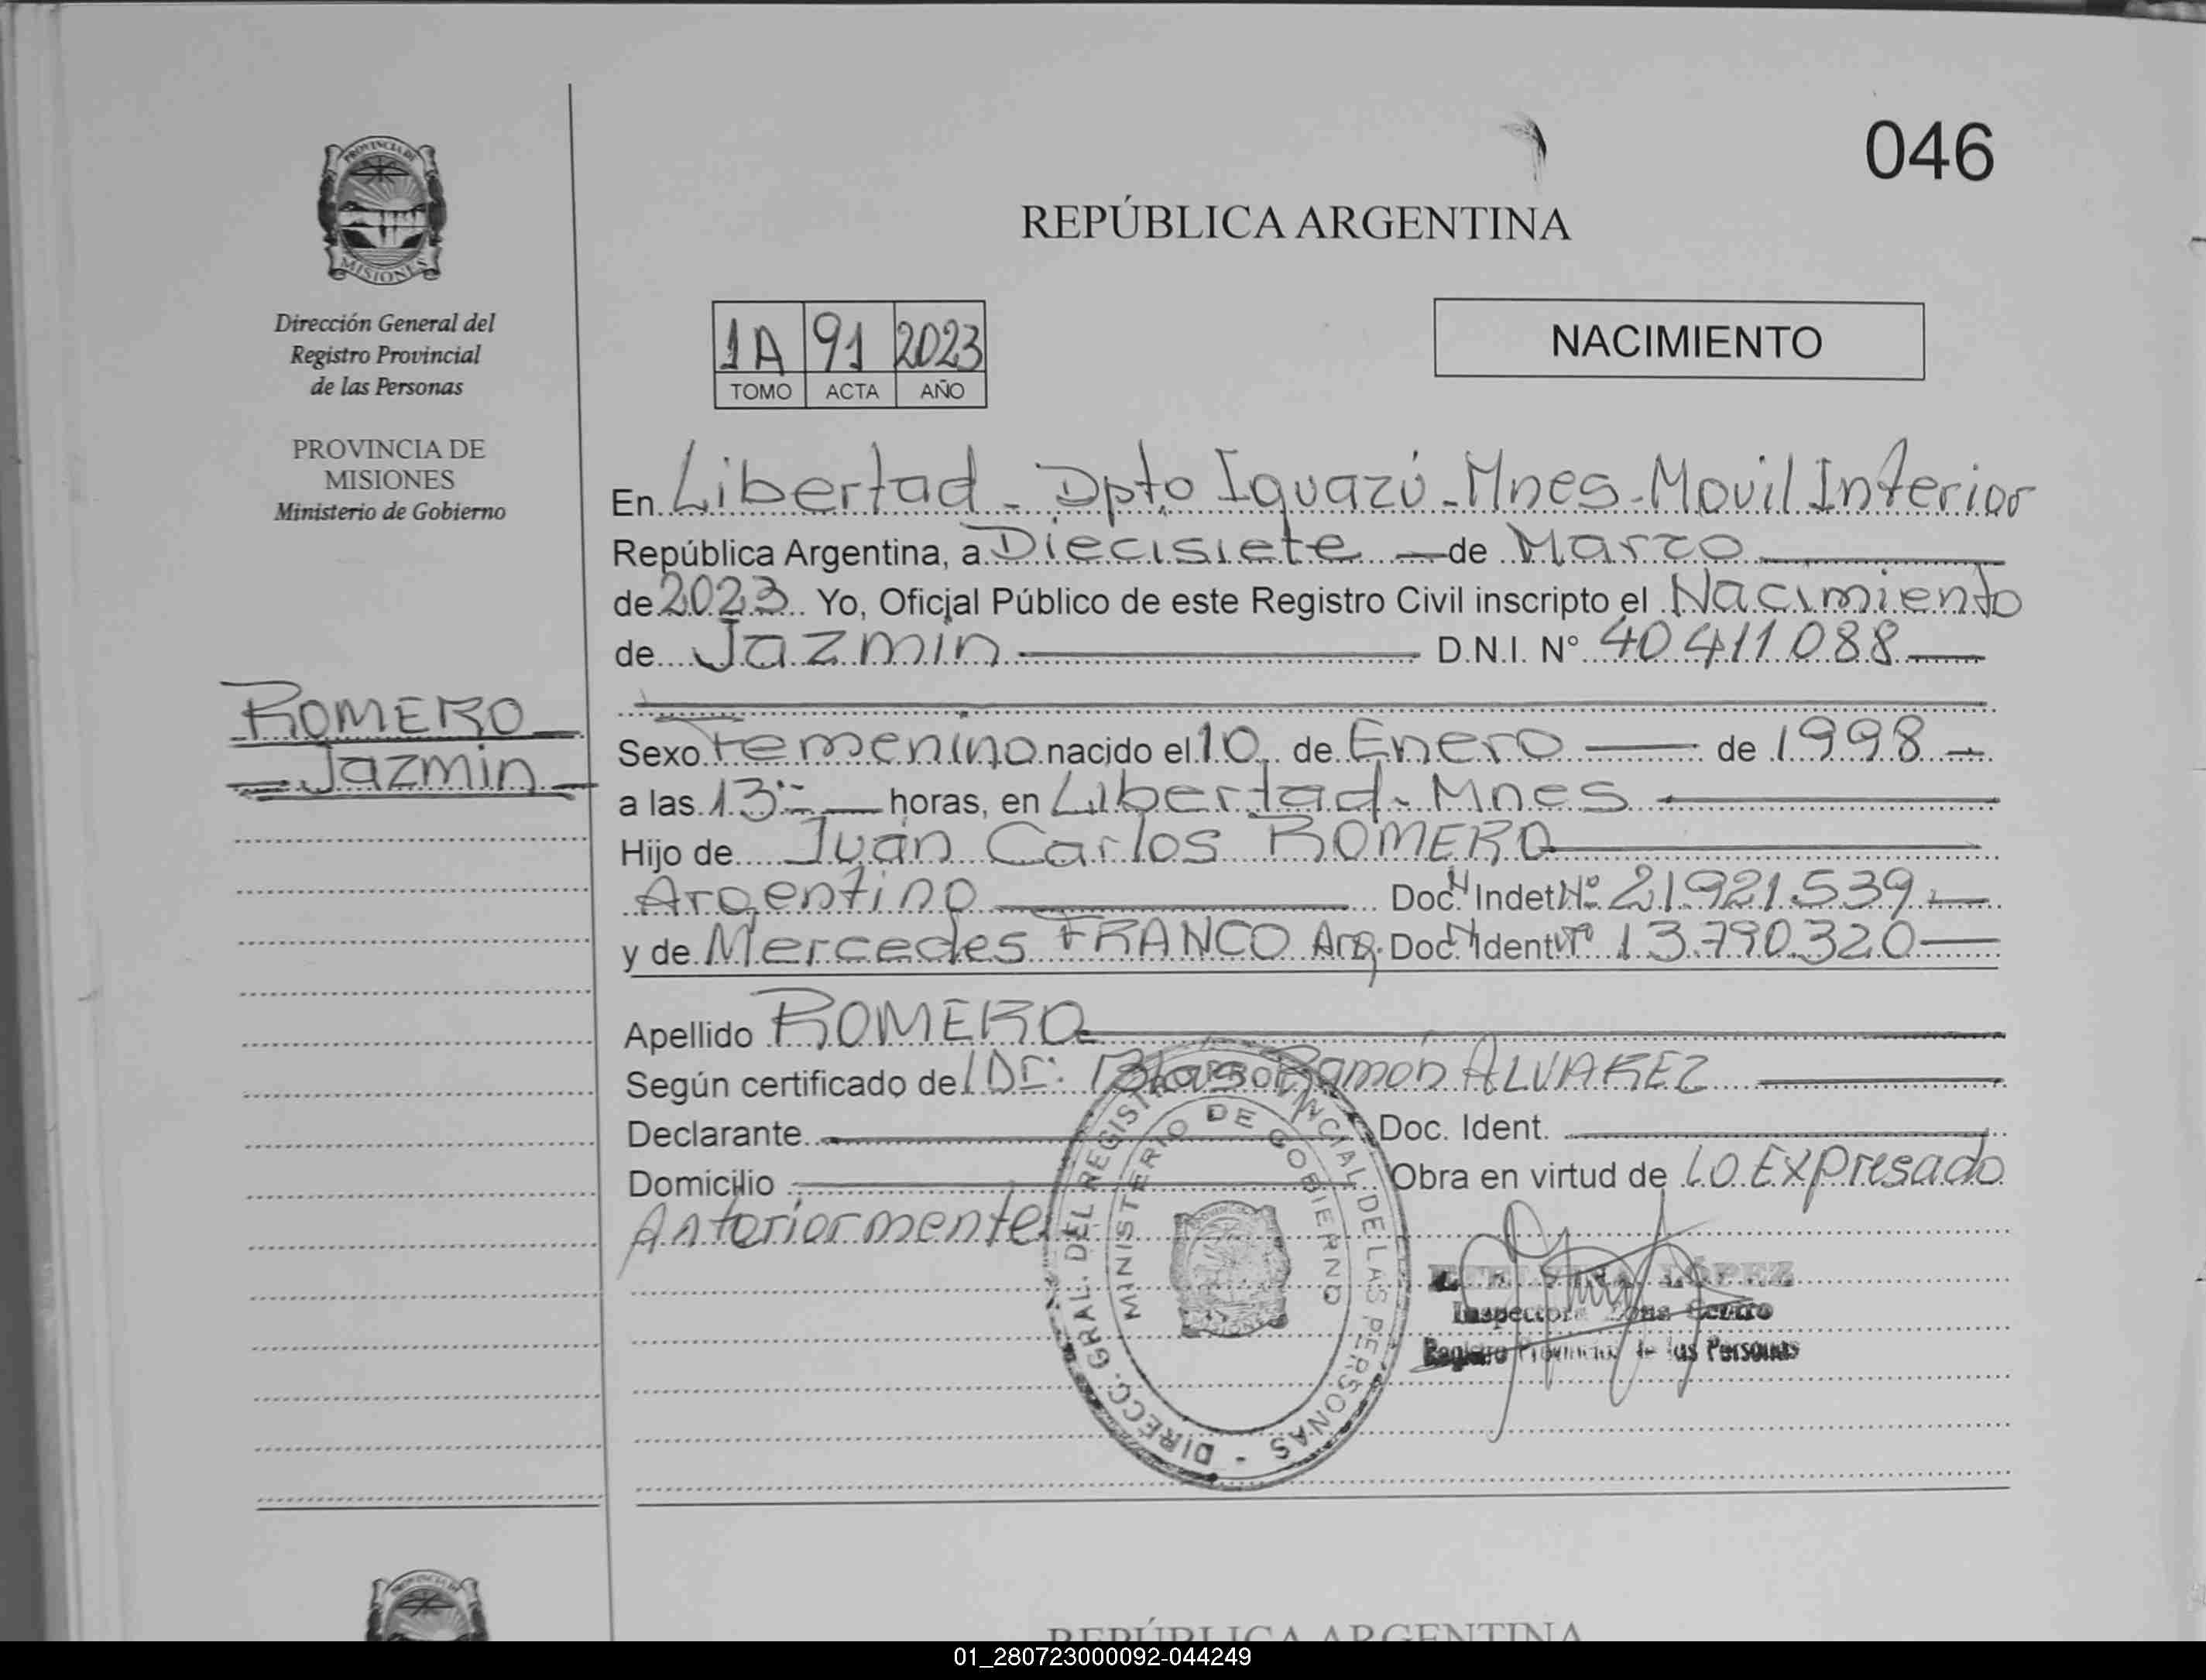 046
REPÚBLICA ARGENTINA
PROVINCIA DE
MISIONES
Dirección General del
Registro Provincial
de las Personas
PROVINCIA DE
MISIONES
Ministerio de Gobierno
1A 91 2023
TOMO ACTA AÑO
NACIMIENTO
ROMERO
Jazmin
En Libertad - Dpto Iguazú - Mnes - Movil Interior
República Argentina, a Diecisiete de Marzo
de 2023 Yo, Oficial Público de este Registro Civil inscripto el Nacimiento
de Jazmin D.N.I. N° 40 411 088
Sexo Femenino nacido el 10 de Enero de 1998
a las 13:- horas, en Libertad - Mnes
Hijo de Juan Carlos ROMERO
Argentino Doc. N Indet Nº 21921.539
y de Mercedes FRANCO Arg. Doc. N Ident Nº 13.790.320
Apellido ROMERO
Según certificado de Dr: Blas Ramón ALVAREZ
Declarante Doc. Ident.
Domicilio Obra en virtud de lo Expresado
Anteriormente
DIRECC. GRAL. DEL REGISTRO PROVINCIAL DE LAS PERSONAS -
MINISTERIO DE GOBIERNO
LÓPEZ
Inspectora Zona Centro
Registro Provincial de las Personas
PROVINCIA DE
REPÚBLICA ARGENTINA
01_280723000092-044249